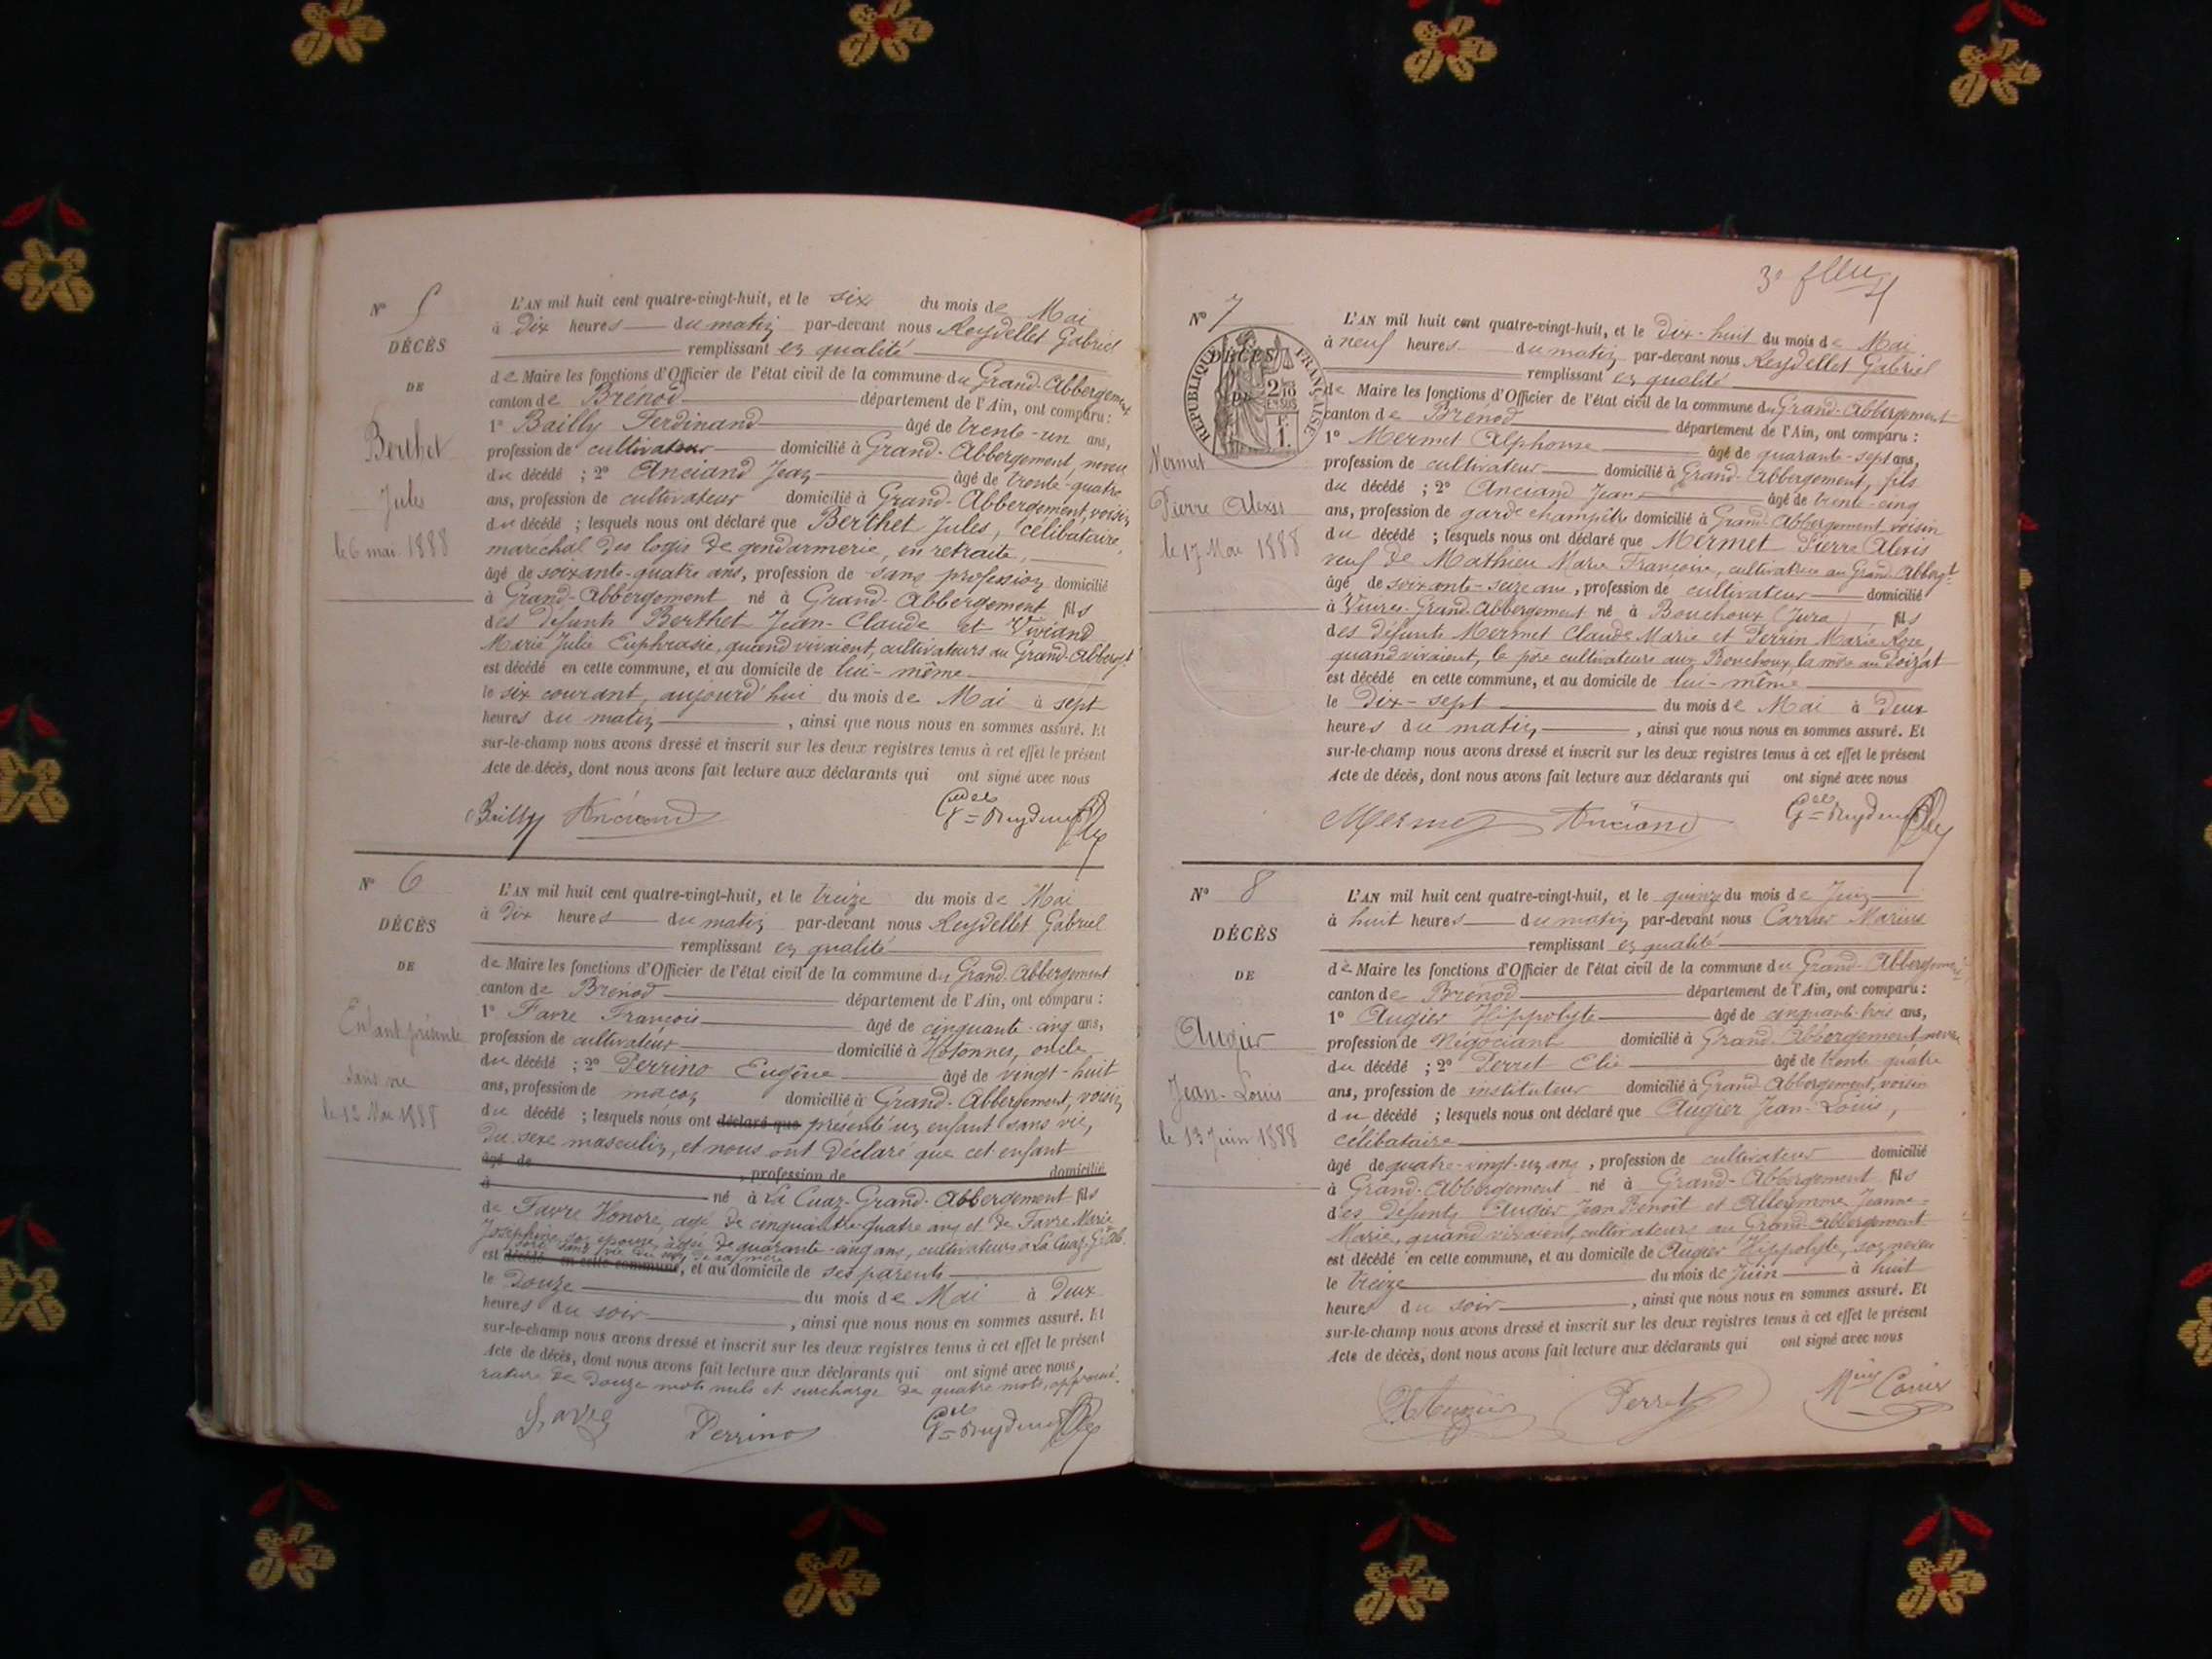 N° 5
DÉCÈS
DE
Berthet
Jules
le 6 mai 1888
L'AN mil huit cent quatre-vingt-huit, et le six du mois de Mai
à dix heures du matin par-devant nous Reydellet Gabriel
remplissant en qualité
de Maire les fonctions d'Officier de l'état civil de la commune du Grand-Abbergement
canton de Brénod département de l'Ain, ont comparu :
1° Bailly Ferdinand âgé de trente-un ans,
profession de cultivateur domicilié à Grand-Abbergement, neveu
du décédé ; 2° Anciand Jean âgé de trente-quatre
ans, profession de cultivateur domicilié à Grand-Abbergement, voisin
du décédé ; lesquels nous ont déclaré que Berthet Jules, célibataire,
maréchal des logis de gendarmerie, en retraite,
âgé de soixante-quatre ans, profession de sans profession domicilié
à Grand-Abbergement né à Grand-Abbergement fils
des défunts Berthet Jean-Claude et Viviand
Marie Julie Euphrasie, quand vivaient, cultivateurs au Grand-Abbergt
est décédé en cette commune, et au domicile de lui-même
le six courant, aujourd'hui du mois de Mai à sept
heures du matin, ainsi que nous nous en sommes assuré. Et
sur-le-champ nous avons dressé et inscrit sur les deux registres tenus à cet effet le présent
Acte de décès, dont nous avons fait lecture aux déclarants qui ont signé avec nous
Bailly Anciand
N° 6
DÉCÈS
DE
Enfant présenté
sans vie
le 12 Mai 1888
L'AN mil huit cent quatre-vingt-huit, et le treize du mois de Mai
à dix heures du matin par-devant nous Reydellet Gabriel
remplissant en qualité
de Maire les fonctions d'Officier de l'état civil de la commune du Grand-Abbergement
canton de Brénod département de l'Ain, ont comparu :
1° Favre François âgé de cinquante-cinq ans,
profession de cultivateur domicilié à Hotonnes, oncle
du décédé ; 2° Perrino Eugène âgé de vingt-huit
ans, profession de maçon domicilié à Grand-Abbergement, voisin
du décédé ; lesquels nous ont déclaré que présenté un enfant sans vie,
du sexe masculin, et nous ont déclaré que cet enfant
âgé de , profession de domicilié
à né à La Cuaz-Grand-Abbergement fils
de Favre Honoré, agé de cinquante-quatre ans et de Favre Marie
Joséphine, son épouse, âgée de quarante-cinq ans, cultivateurs à La Cuaz-Gd Abb.
sorti sans vie du sein de sa mère
est décédé en cette commune, et au domicile de ses parents
le douze du mois de Mai à deux
heures du soir, ainsi que nous nous en sommes assuré. Et
sur-le-champ nous avons dressé et inscrit sur les deux registres tenus à cet effet le présent
Acte de décès, dont nous avons fait lecture aux déclarants qui ont signé avec nous
rature de douze mots nuls et surcharge de quatre mots, approuvé.
Favre Perrino
N° 7
DÉCÈS
DE
RÉPUBLIQUE FRANÇAISE
2/10 EN SUS
1 F.
Mermet
Pierre Alexis
le 17 Mai 1888
L'AN mil huit cent quatre-vingt-huit, et le dix-huit du mois de Mai
à neuf heures du matin par-devant nous Reydellet Gabriel
remplissant en qualité
de Maire les fonctions d'Officier de l'état civil de la commune du Grand-Abbergement
canton de Brénod département de l'Ain, ont comparu :
1° Mermet Alphonse âgé de quarante-sept ans,
profession de cultivateur domicilié à Grand-Abbergement, fils
du décédé ; 2° Anciand Jean âgé de trente-cinq
ans, profession de garde champêtre domicilié à Grand-Abbergement voisin
du décédé ; lesquels nous ont déclaré que Mermet Pierre Alexis
veuf de Mathieu Marie Françoise, cultivatrice au Grand-Abbergt
âgé de soixante-seize ans, profession de cultivateur domicilié
à Grand-Abbergement né à Bouchoux (Jura) fils
des défunts Mermet Claude Marie et Perrin Marie Rose,
quand vivaient, le père cultivateurs aux Bouchoux, la mère au Poizat
est décédé en cette commune, et au domicile de lui-même
le dix-sept du mois de Mai à deux
heures du matin, ainsi que nous nous en sommes assuré. Et
sur-le-champ nous avons dressé et inscrit sur les deux registres tenus à cet effet le présent
Acte de décès, dont nous avons fait lecture aux déclarants qui ont signé avec nous
Mermet Anciand
N° 8
DÉCÈS
DE
Augier
Jean-Louis
le 13 Juin 1888
L'AN mil huit cent quatre-vingt-huit, et le quinze du mois de Juin
à huit heures du matin par-devant nous Carrier Marius
remplissant en qualité
de Maire les fonctions d'Officier de l'état civil de la commune du Grand-Abbergement
canton de Brénod département de l'Ain, ont comparu :
1° Augier Hippolyte âgé de cinquante-trois ans,
profession de Négociant domicilié à Grand-Abbergement neveu
du décédé ; 2° Perret Elie âgé de trente-quatre
ans, profession de instituteur domicilié à Grand-Abbergement, voisin
du décédé ; lesquels nous ont déclaré que Augier Jean-Louis,
célibataire
âgé de quatre-vingt-un ans, profession de cultivateur domicilié
à Grand-Abbergement né à Grand-Abbergement fils
des défunts Augier Jean Benoît et Alleymme Jeanne-
Marie, quand vivaient, cultivateurs au Grand-Abbergement
est décédé en cette commune, et au domicile de Augier Hippolyte, son neveu
le treize du mois de Juin à huit
heures du soir, ainsi que nous nous en sommes assuré. Et
sur-le-champ nous avons dressé et inscrit sur les deux registres tenus à cet effet le présent
Acte de décès, dont nous avons fait lecture aux déclarants qui ont signé avec nous
Perret Mius Carrier